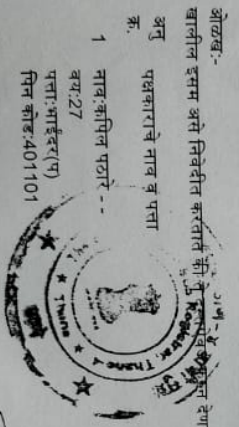 ओळख:-
खालील इसम असे निवेदीत करतात की ते दस्तऐवज करुन देणा
अनु पक्षकाराचे नाव व पत्ता
क्र.
1 नाव:कपिल पठारे - -
वय:27
पत्ता:भाईंदर(प)
पिन कोड:401101
Registrar Thane